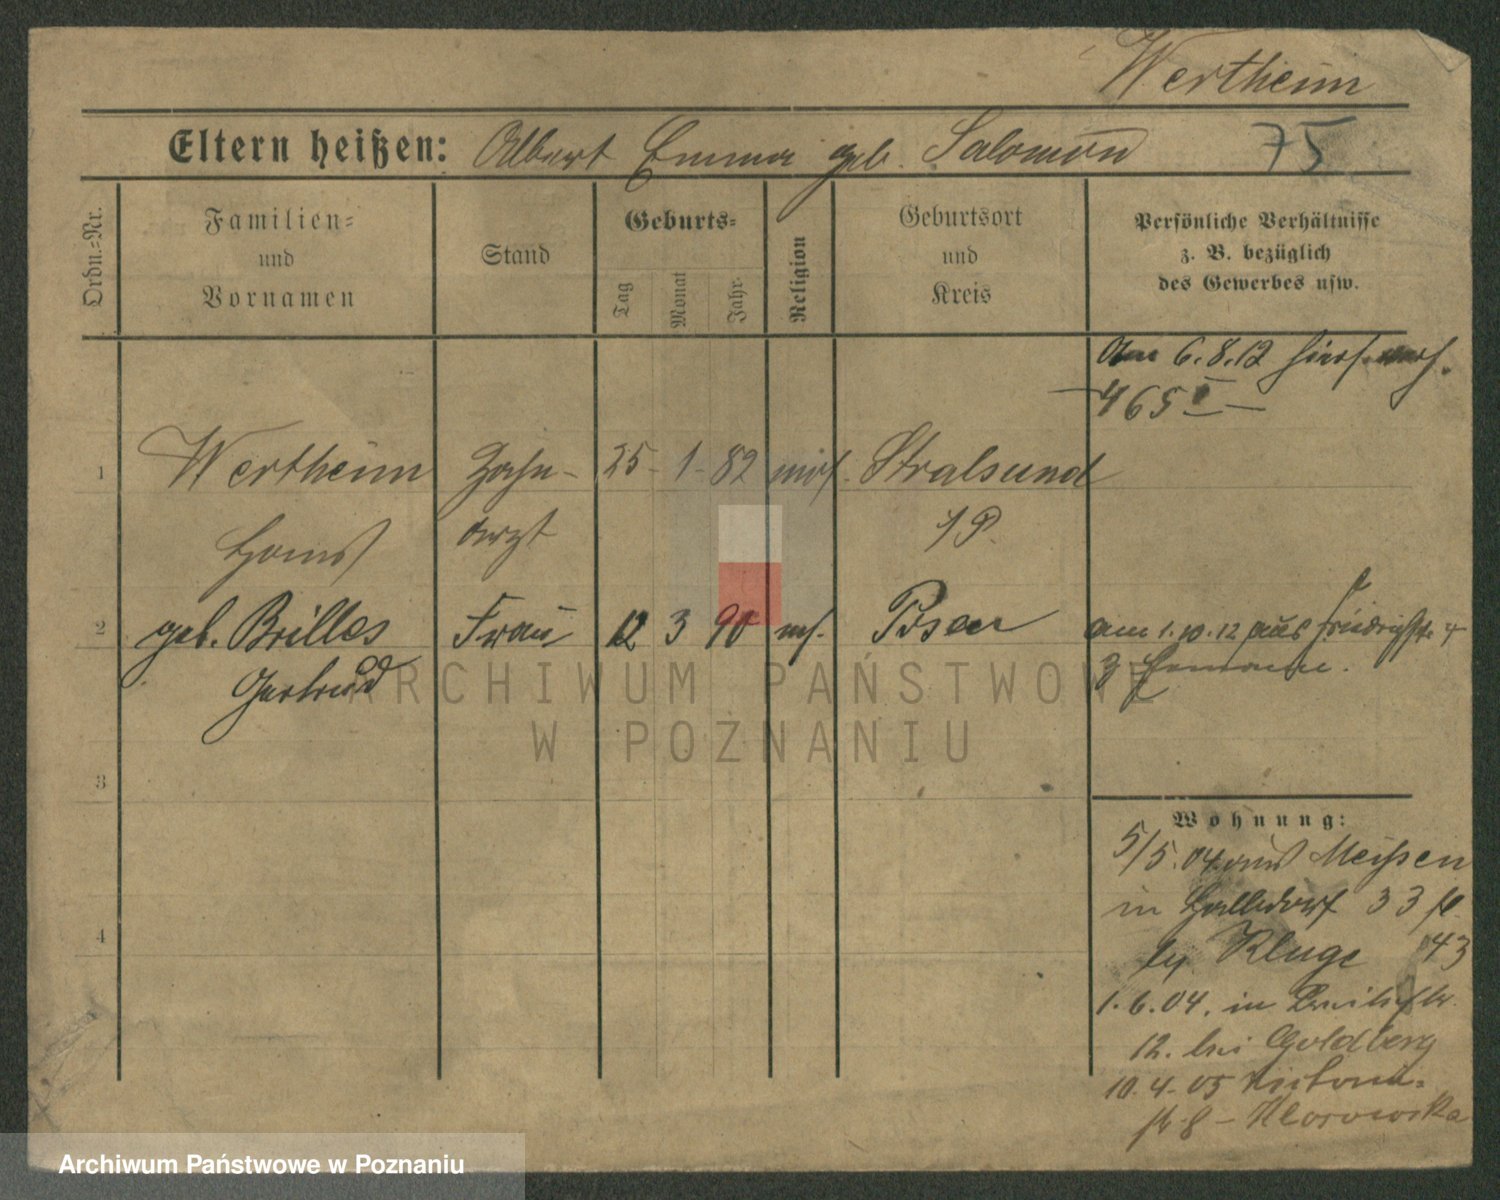 Wertheim
Eltern heißen: Albert Emma geb. Salomon 75
Ordn.-Nr.
Familien-
und
Vornamen
Stand
Geburts-
Tag
Monat
Jahr
Religion
Geburtsort
und
Kreis
Persönliche Verhältnisse
z. B. bezüglich
des Gewerbes usw.
Am 6.8.12
465 I
1 Wertheim Zahn- 25 - 1 - 82 mos. Stralsund
Hans arzt
2 geb. Brilles Frau 12 3 90 ms. Posen
Gertrud
am 1.10.12 aus Friedrichstr 4
3
4
Wohnung:
5/5.04 aus Meißen
in Halbdorf 33
Kluge 43
1.6.04. in
12. bei Goldberg
10.4.05 Victoria-
str 8 -
ARCHIWUM PAŃSTWOWE
W POZNANIU
Archiwum Państwowe w Poznaniu